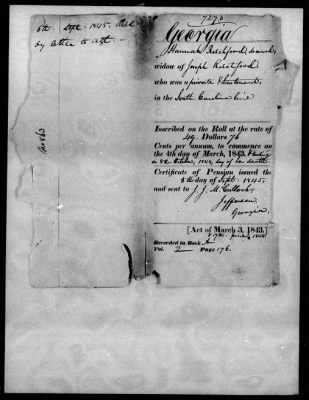 6th Sept. 1845.
by letter to agt.
7276
Georgia
Hannah Ratchford, decd.
widow of Joseph Ratchford
who was a private & Lieutenant
in the South Carolina line
Inscribed on the Roll at the rate of
49 Dollars 76
Cents per annum, to commence on
the 4th day of March, 1843.
October, 1844, day of her death.
Certificate of Pension issued the
5th day of Sept. 1845.
and sent to J. J. McCulloch,
Jefferson,
Georgia.
[Act of March 3, 1843.]
17th June, 1844
Recorded in Book A
Vol. 2 Page 176.